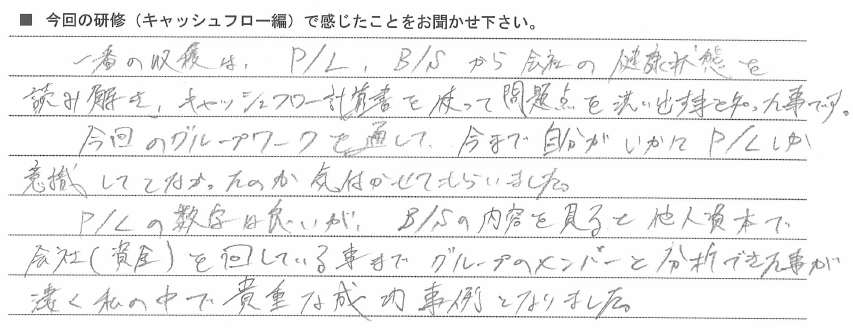 ■ 今回の研修（キャッシュフロー編）で感じたことをお聞かせ下さい。
一番の収穫は、P/L、B/Sから会社の健康状態を
読み解き、キャッシュフロー計算書を使って問題点を洗い出す事を知った事です。
今回のグループワークを通して、今まで自分がいかにP/Lしか
意識してこなかったのか気付かせてもらいました。
P/Lの数字は良いが、B/Sの内容を見ると他人資本で
会社(資金)を回している事までグループのメンバーと分析できた事が
凄く私の中で貴重な成功事例となりました。